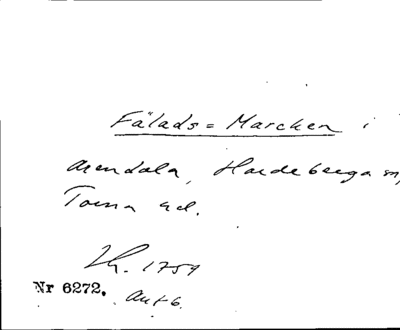 Fälads=Marcken i
Arendala, Hardeberga sn,
Torna hd.
1759
Nr 6272.